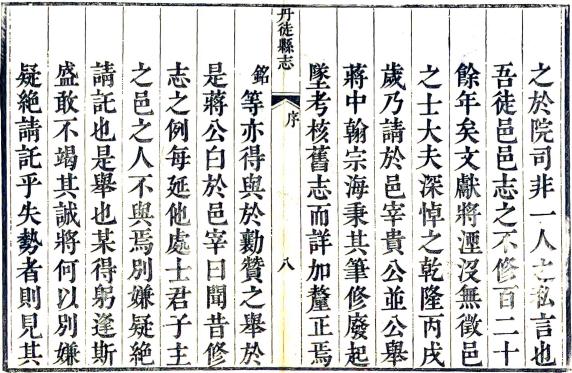 之於院司非一人之私言也
吾徒邑邑志之不修百二十
餘年矣文獻將湮沒無徵邑
之士大夫深悼之乾隆丙戌
歲乃請於邑宰貴公並公舉
蔣中翰宗海秉其筆修廢起
墜考核舊志而詳加釐正焉
丹徒縣志
序
八
銘等亦得與於勷贊之舉於
是蔣公白於邑宰曰聞昔修
志之例每延他處士君子主
之邑之人不與焉別嫌疑絕
請託也是舉也某得躬逢斯
盛敢不竭其誠將何以別嫌
疑絕請託乎失勢者則見其